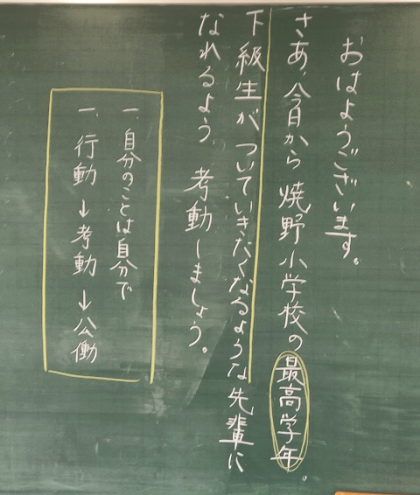 おはようございます。
さあ、今日から焼野小学校の最高学年。
下級生がついていきたくなるような先輩に
なれるよう考動しましょう。
一、自分のことは自分で
一、行動→考動→公働